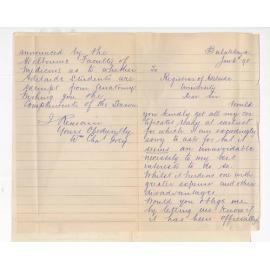 Balaklava
Jan 6th 90
To
Registrar of Adelaide
University
Dear Sir
Would
you kindly get all my cer-
tificates ready at earliest
for which I am exceedingly
sorry to ask for but it
seems an unavoidable
necessity to my best
interests to do so.
Whilst it burdens one with
greater expense and other
disadvantages.
Would you oblige me
by letting me know if
it has been officially
announced by the
Melbourne Faculty of
Medicine as to whether
Adelaide Students are
exempt from Anatomy.
Wishing you the
Compliments of the Season
I Remain
Yours Obediently
Wm Chas